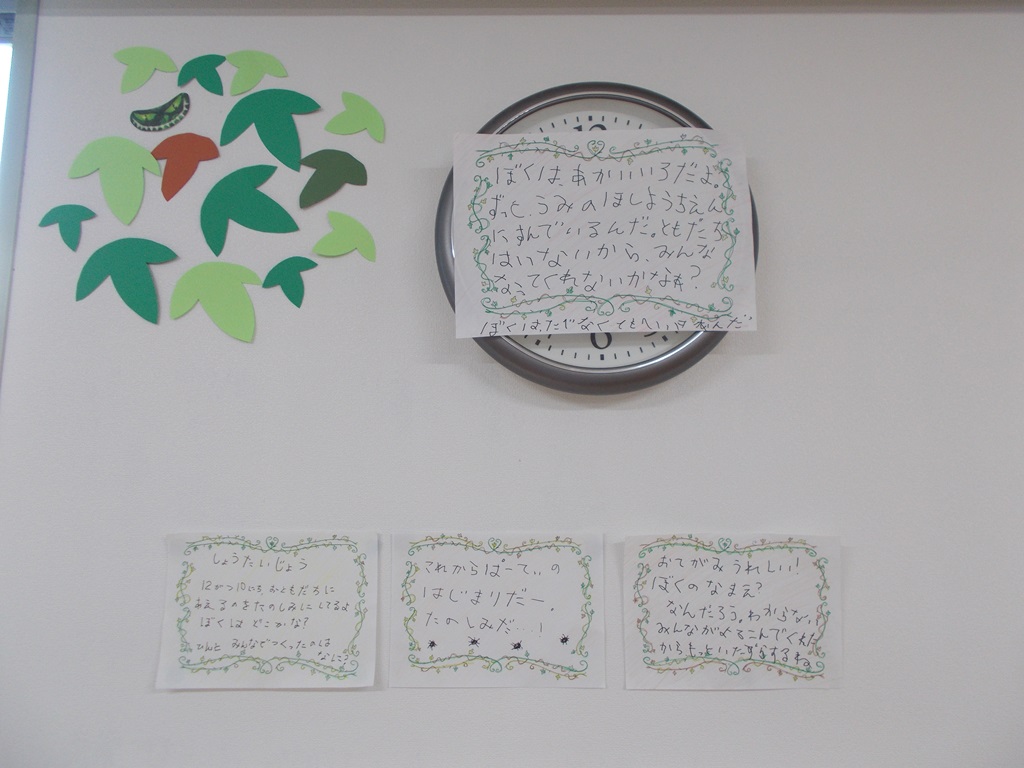 12
ぼくは、あかいいろだよ。
ずっと、うみのほしようちえん
にすんでいるんだ。ともだち
はいないから、みんな
なってくれないかなぁ?
ぼくは、
6
しょうたいじょう
12がつ10にち、おともだちに
あえるのをたのしみにしてるよ
ぼくは どこかな?
ひんと みんなでつくったのは
なに?
これからぱーてぃの
はじまりだー。
たのしみだ…!
おてがみうれしい!
ぼくのなまえ?
なんだろう。わからない。
みんながよろこんでくれた
からもっといたずらするね。